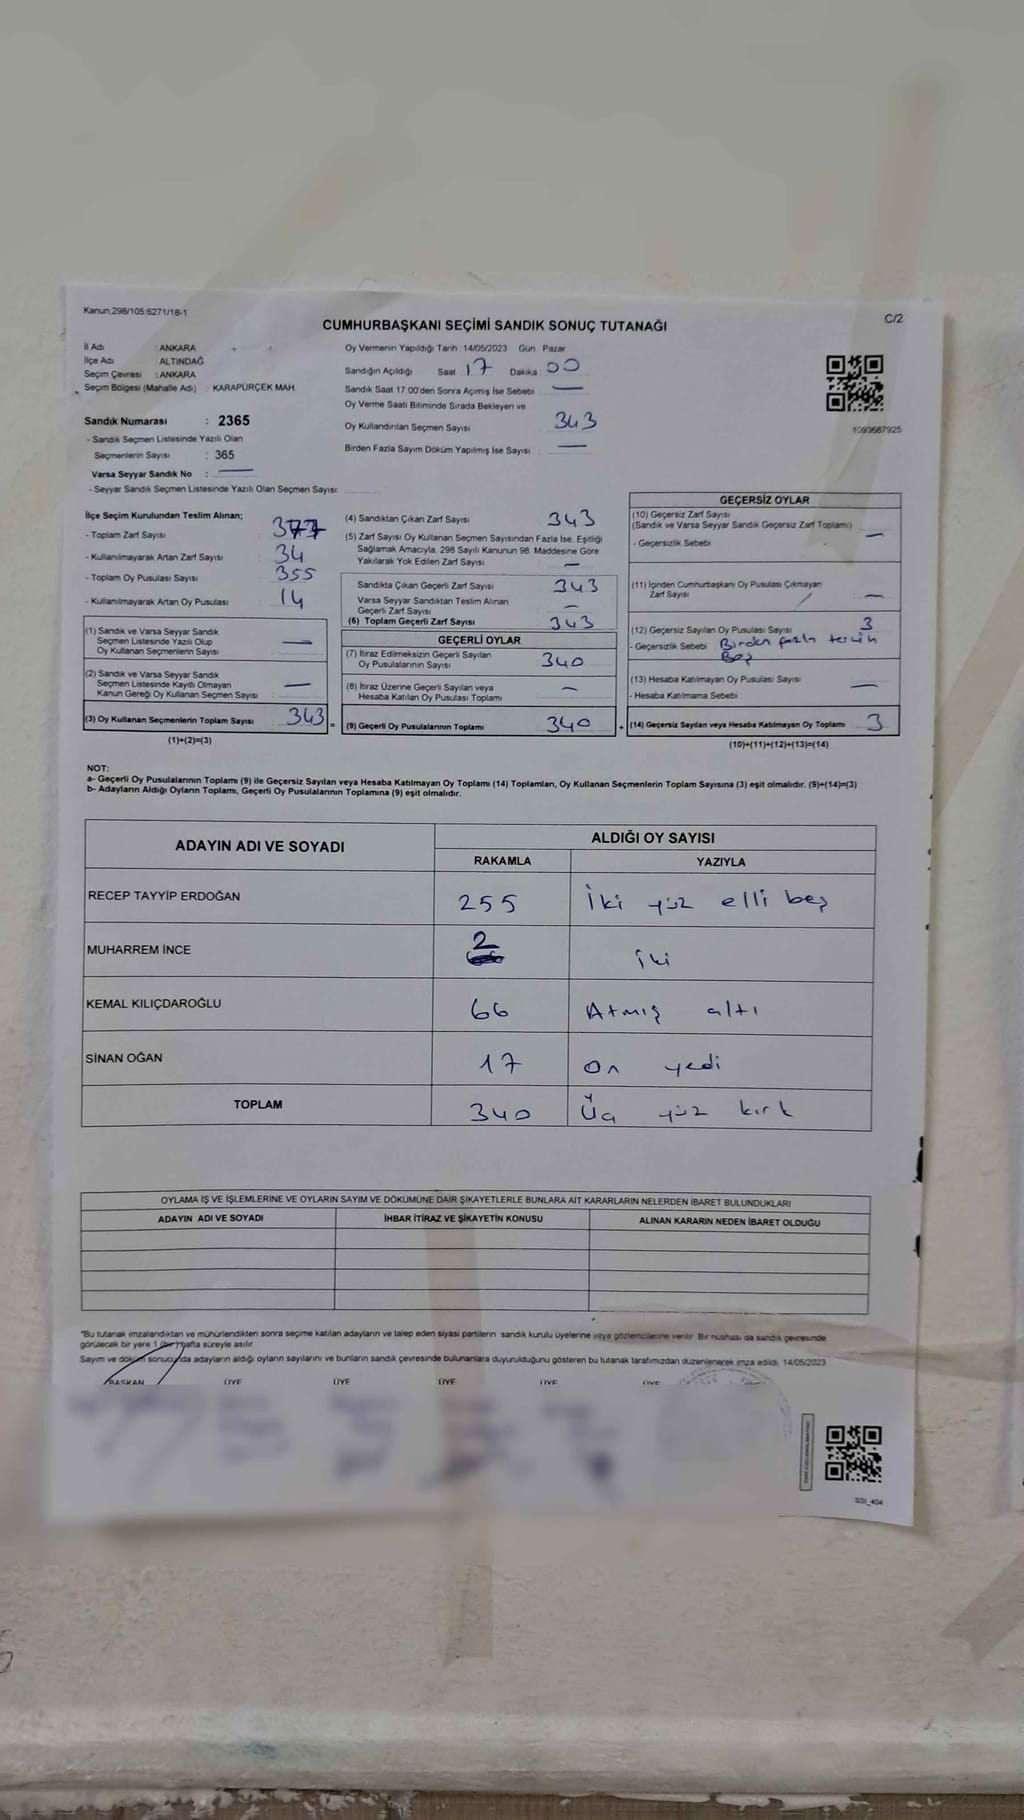 Kanun;298/105;6271/18-1
C/2
CUMHURBAŞKANI SEÇİMİ SANDIK SONUÇ TUTANAĞI
İl Adı : ANKARA
İlçe Adı : ALTINDAĞ
Seçim Çevresi : ANKARA
Seçim Bölgesi (Mahalle Adı) : KARAPÜRÇEK MAH.
Sandık Numarası : 2365
- Sandık Seçmen Listesinde Yazılı Olan
Seçmenlerin Sayısı : 365
Varsa Seyyar Sandık No : —
- Seyyar Sandık Seçmen Listesinde Yazılı Olan Seçmen Sayısı
Oy Vermenin Yapıldığı Tarih :14/05/2023 Gün Pazar
Sandığın Açıldığı Saat 17 Dakika 00
Sandık Saat 17.00'den Sonra Açımış İse Sebebi —
Oy Verme Saati Bitiminde Sırada Bekleyen ve
Oy Kullandırılan Seçmen Sayısı 343
Birden Fazla Sayım Döküm Yapılmış İse Sayısı —
1093687925
İlçe Seçim Kurulundan Teslim Alınan;
- Toplam Zarf Sayısı 377
- Kullanılmayarak Artan Zarf Sayısı 34
- Toplam Oy Pusulası Sayısı 355
- Kullanılmayarak Artan Oy Pusulası 14
(1) Sandık ve Varsa Seyyar Sandık
Seçmen Listesinde Yazılı Olup
Oy Kullanan Seçmenlerin Sayısı —
(2) Sandık ve Varsa Seyyar Sandık
Seçmen Listesinde Kayıtlı Olmayan
Kanun Gereği Oy Kullanan Seçmen Sayısı —
(3) Oy Kullanan Seçmenlerin Toplam Sayısı 343 =
(1)+(2)=(3)
(4) Sandıktan Çıkan Zarf Sayısı 343
(5) Zarf Sayısı Oy Kullanan Seçmen Sayısından Fazla İse, Eşitliği
Sağlamak Amacıyla, 298 Sayılı Kanunun 98. Maddesine Göre
Yakılarak Yok Edilen Zarf Sayısı —
Sandıkta Çıkan Geçerli Zarf Sayısı 343
Varsa Seyyar Sandıktan Teslim Alınan
Geçerli Zarf Sayısı —
(6) Toplam Geçerli Zarf Sayısı 343
GEÇERLİ OYLAR
(7) İtiraz Edilmeksizin Geçerli Sayılan
Oy Pusulalarının Sayısı 340
(8) İtiraz Üzerine Geçerli Sayılan veya
Hesaba Katılan Oy Pusulası Toplamı —
(9) Geçerli Oy Pusulalarının Toplamı 340 +
GEÇERSİZ OYLAR
(10) Geçersiz Zarf Sayısı
(Sandık ve Varsa Seyyar Sandık Geçersiz Zarf Toplamı) —
- Geçersizlik Sebebi
(11) İçinden Cumhurbaşkanı Oy Pusulası Çıkmayan
Zarf Sayısı —
(12) Geçersiz Sayılan Oy Pusulası Sayısı 3
- Geçersizlik Sebebi Birden fazla tercih
Boş
(13) Hesaba Katılmayan Oy Pusulası Sayısı —
- Hesaba Katılmama Sebebi
(14) Geçersiz Sayılan veya Hesaba Katılmayan Oy Toplamı 3
(10)+(11)+(12)+(13)=(14)
NOT:
a- Geçerli Oy Pusulalarının Toplamı (9) ile Geçersiz Sayılan veya Hesaba Katılmayan Oy Toplamı (14) Toplamları, Oy Kullanan Seçmenlerin Toplam Sayısına (3) eşit olmalıdır. (9)+(14)=(3)
b- Adayların Aldığı Oyların Toplamı, Geçerli Oy Pusulalarının Toplamına (9) eşit olmalıdır.
ADAYIN ADI VE SOYADI ALDIĞI OY SAYISI
RAKAMLA YAZIYLA
RECEP TAYYİP ERDOĞAN 255 İki yüz elli beş
MUHARREM İNCE 2 iki
KEMAL KILIÇDAROĞLU 66 Atmış altı
SİNAN OĞAN 17 On yedi
TOPLAM 340 Üç yüz kırk
OYLAMA İŞ VE İŞLEMLERİNE VE OYLARIN SAYIM VE DÖKÜMÜNE DAİR ŞİKAYETLERLE BUNLARA AİT KARARLARIN NELERDEN İBARET BULUNDUKLARI
ADAYIN ADI VE SOYADI İHBAR İTİRAZ VE ŞİKAYETİN KONUSU ALINAN KARARIN NEDEN İBARET OLDUĞU
"Bu tutanak imzalandıktan ve mühürlendikten sonra seçime katılan adayların ve talep eden siyasi partilerin sandık kurulu üyelerine veya gözlemcilerine verilir. Bir nüshası da sandık çevresinde
görülecek bir yere 1 (bir) hafta süreyle asılır.
Sayım ve döküm sonucunda adayların aldığı oyların sayılarını ve bunların sandık çevresinde bulunanlara duyurulduğunu gösteren bu tutanak tarafımızdan düzenlenerek imza edildi. 14/05/2023
BAŞKAN ÜYE ÜYE ÜYE ÜYE ÜYE
SSI_404